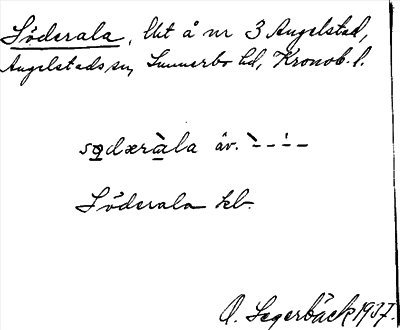 Söderala, lht å nr 3 Angelstad,
Angelstads sn, Sunnerbo hd, Kronob. l.
sǫdæràla äv. `--´-
Söderala kb.
O. Segerbäck 1937.